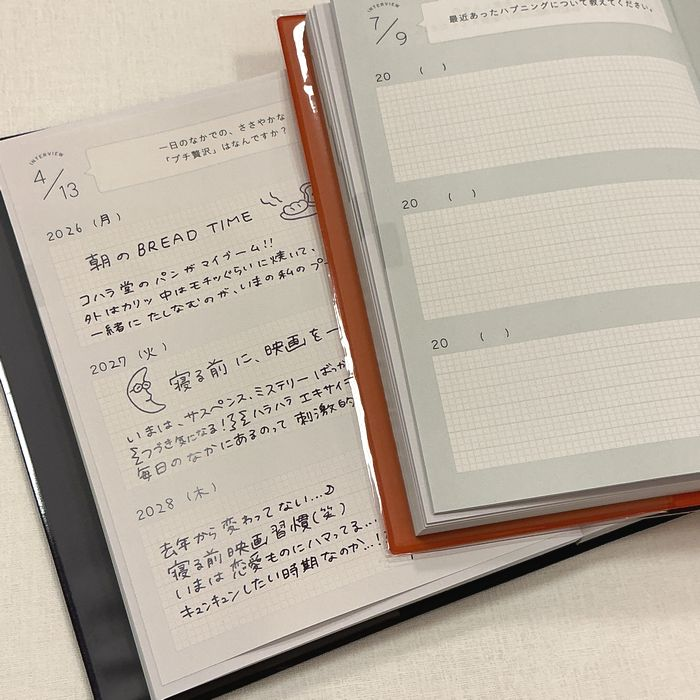 INTERVIEW
4/13
一日のなかでの、ささやかな
「プチ贅沢」はなんですか？
2026（月）
朝のBREAD TIME
コハラ堂のパンがマイブーム!!
外はカリッ 中はモチッぐらいに焼いて、
一緒に たしなむのが、いまの私のプ
2027（火）
寝る前に、映画を一
いまは、サスペンス・ミステリー ばっか
つづき気になる! ハラハラ エキサイ
毎日のなかにあるのって 刺激的
2028（木）
去年から変わってない…
寝る前映画習慣(笑)
いまは 恋愛ものにハマってる…
キュンキュンしたい時期なのか…!
INTERVIEW
7/9
最近あったハプニングについて教えてください。
20 （ ）
20 （ ）
20 （ ）